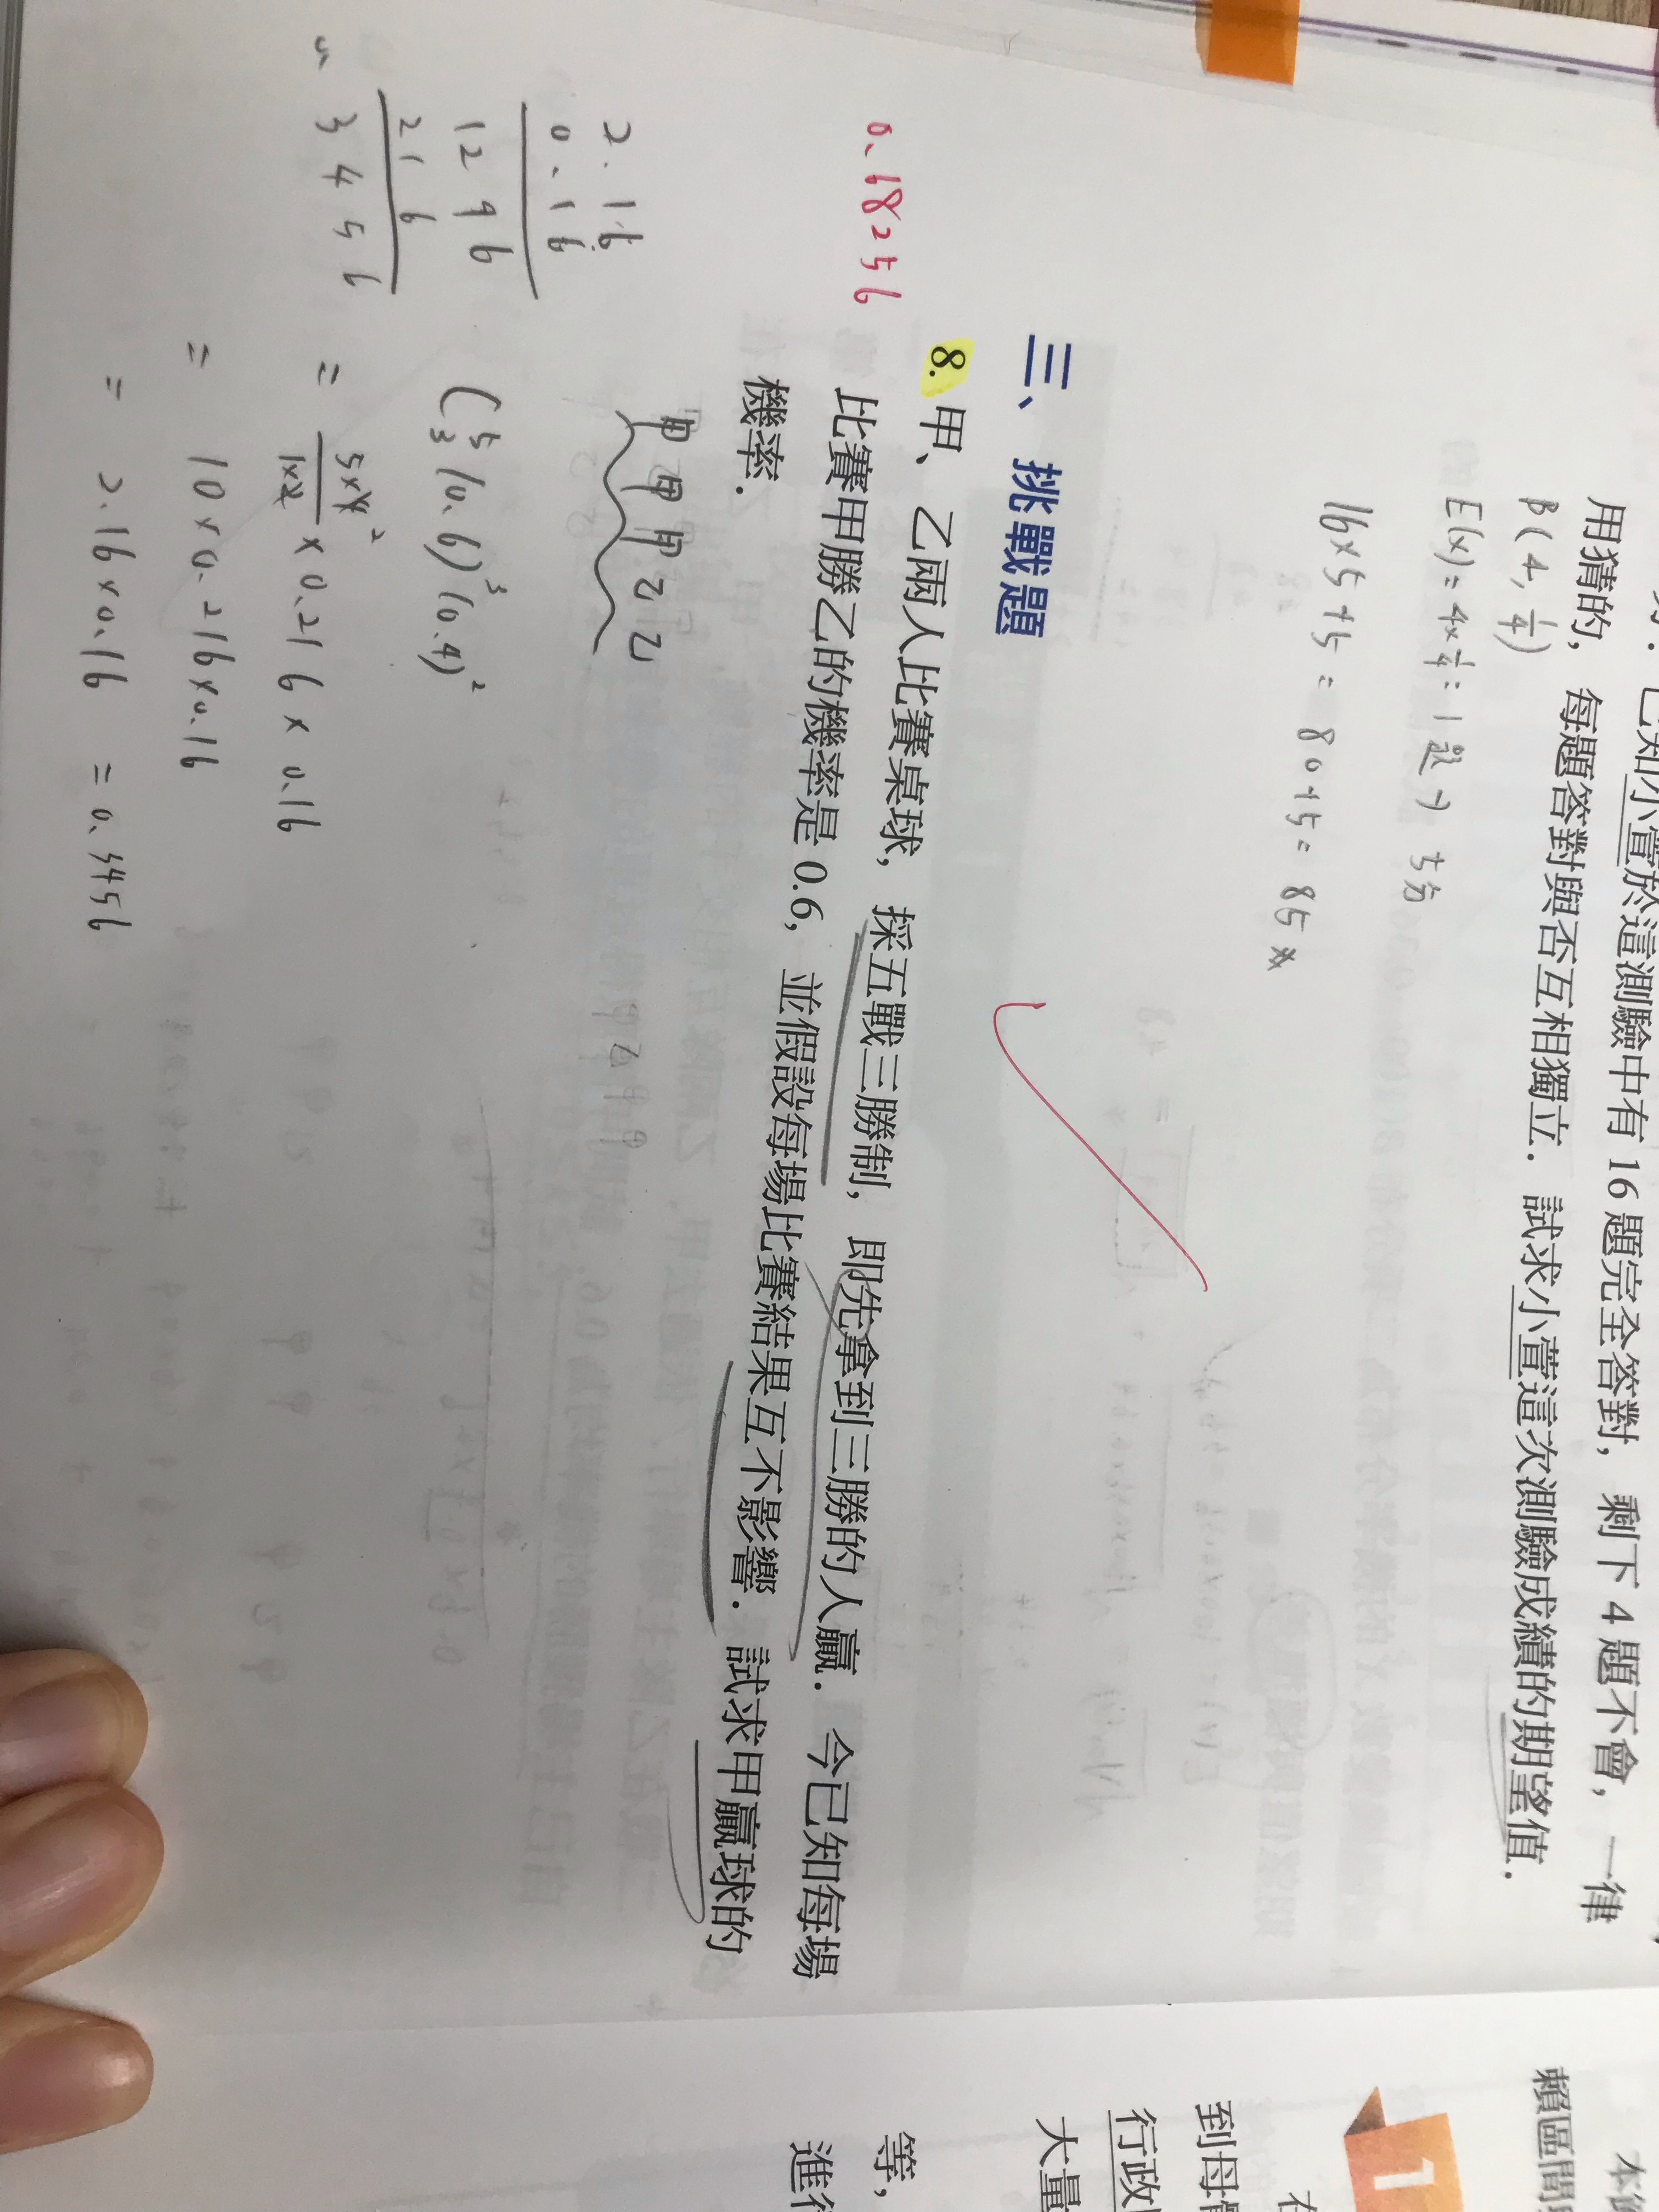 用猜的，每題答對與否互相獨立．試求小萱這次測驗成績的期望值．
已知小萱於這測驗中有 16 題完全答對，剩下 4 題不會，一律
B(4, 1/4)
E(x) = 4×1/4 = 1題 → 5分
16×5+5 = 80+5 = 85
三、挑戰題
0.68256
8. 甲、乙兩人比賽桌球，採五戰三勝制，即先拿到三勝的人贏．今已知每場
比賽甲勝乙的機率是 0.6，並假設每場比賽結果互不影響．試求甲贏球的
機率．
甲甲甲乙乙
(5 3)(0.6)³(0.4)²
= 5×4/1×2 × 0.216 × 0.16
2
= 10 × 0.216 × 0.16
= 2.16 × 0.16 = 0.3456
2.16
0.16
1296
216
3456
1
到母
行政
大量
等，
進行